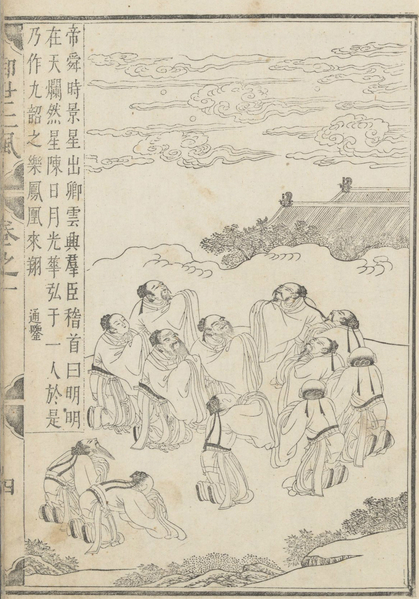 帝舜時景星出卿雲興羣臣稽首曰明明
在天爛然星陳日月光華弘于一人於是
乃作九韶之樂鳳凰來翔
通鑒
卷之一
四